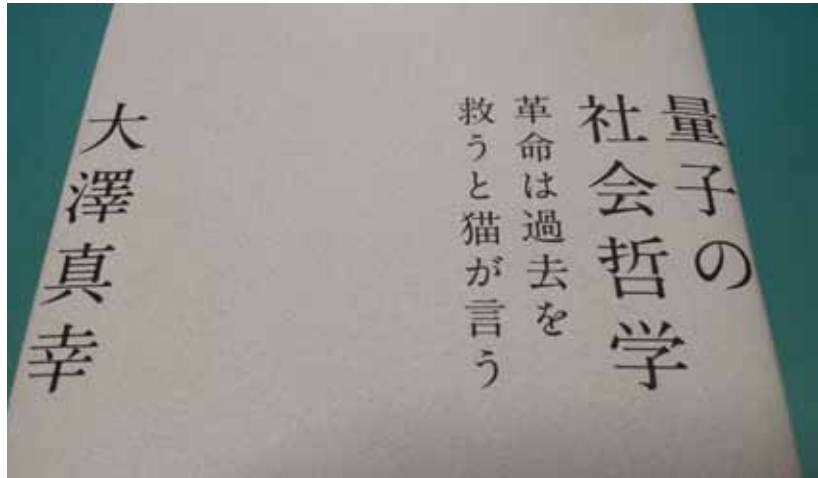 量子の
社会哲学
革命は過去を
救うと猫が言う
大澤真幸